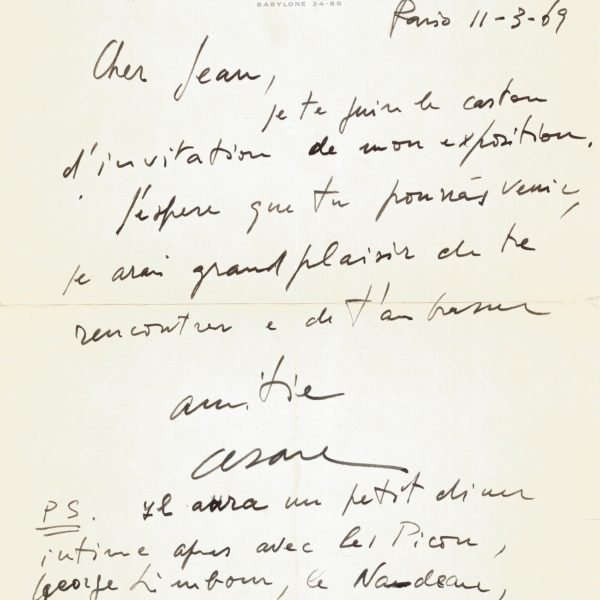 BABYLONE 24-86
Paris 11-3-69
Cher Jean,
je te joins le carton
d'invitation de mon exposition.
J'espere que tu pourràs venir,
je arai grand plaisir de te
rencontrer e de t'ambrasser
amitie
Cesare
PS. Il aura un petit diner
intime apres avec les Picon,
George Limbour, le Nadeau,